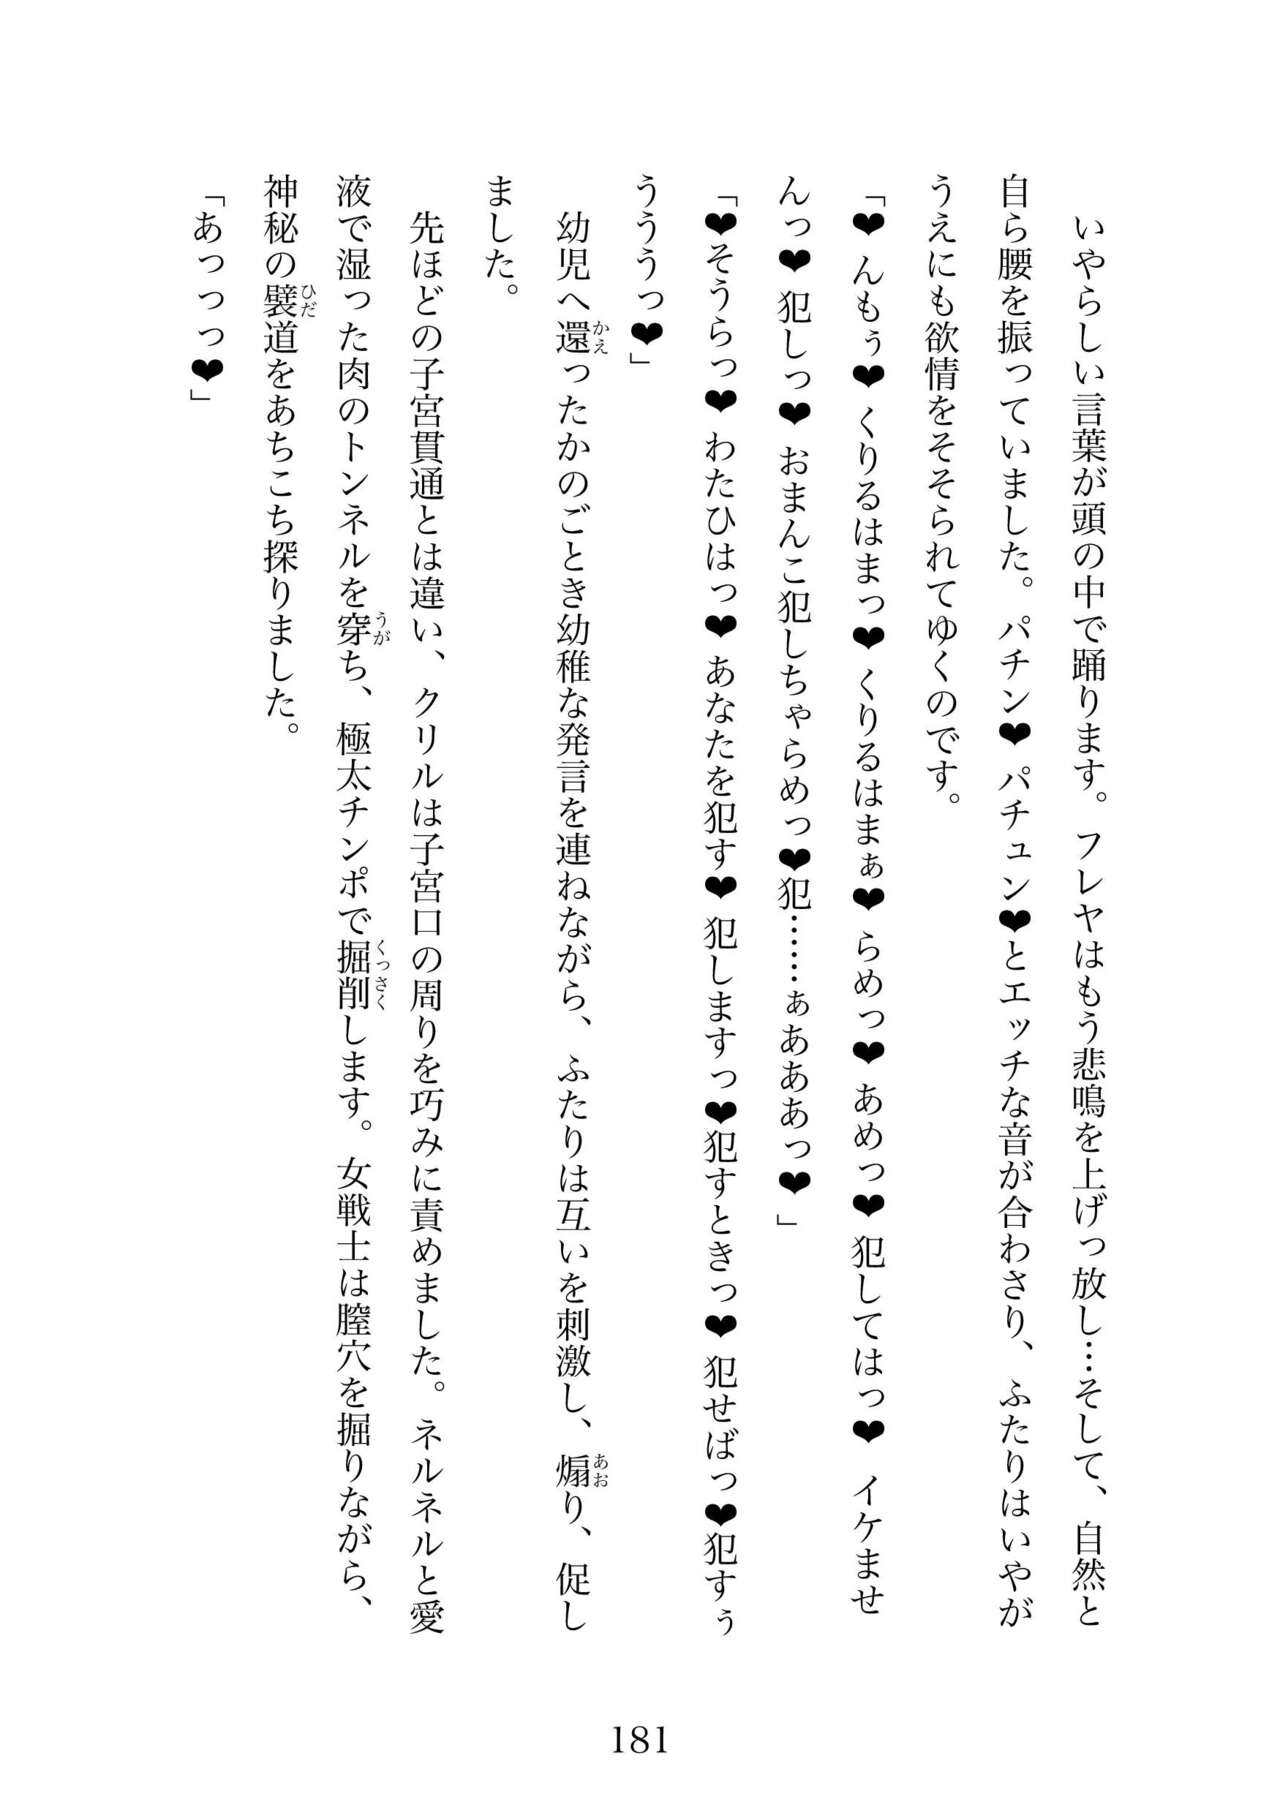 いやらしい言葉が頭の中で踊ります。フレヤはもう悲鳴を上げっ放し…そして、自然と
自ら腰を振っていました。パチン❤ パチュン❤とエッチな音が合わさり、ふたりはいやが
うえにも欲情をそそられてゆくのです。
「❤ んもぅ❤ くりるはまっ❤ くりるはまぁ❤ らめっ❤ あめっ❤ 犯してはっ❤ イケませ
んっ❤ 犯しっ❤ おまんこ犯しちゃらめっ❤犯……ぁあああっ❤」
「❤そうらっ❤ わたひはっ❤ あなたを犯す❤ 犯しますっ❤犯すときっ❤ 犯せばっ❤犯すぅ
うううっ❤」
幼児へ還ったかのごとき幼稚な発言を連ねながら、ふたりは互いを刺激し、煽り、促し
ました。
先ほどの子宮貫通とは違い、クリルは子宮口の周りを巧みに責めました。ネルネルと愛
液で湿った肉のトンネルを穿ち、極太チンポで掘削します。女戦士は膣穴を掘りながら、
神秘の襞道をあちこち探りました。
「あっっっ❤」
181